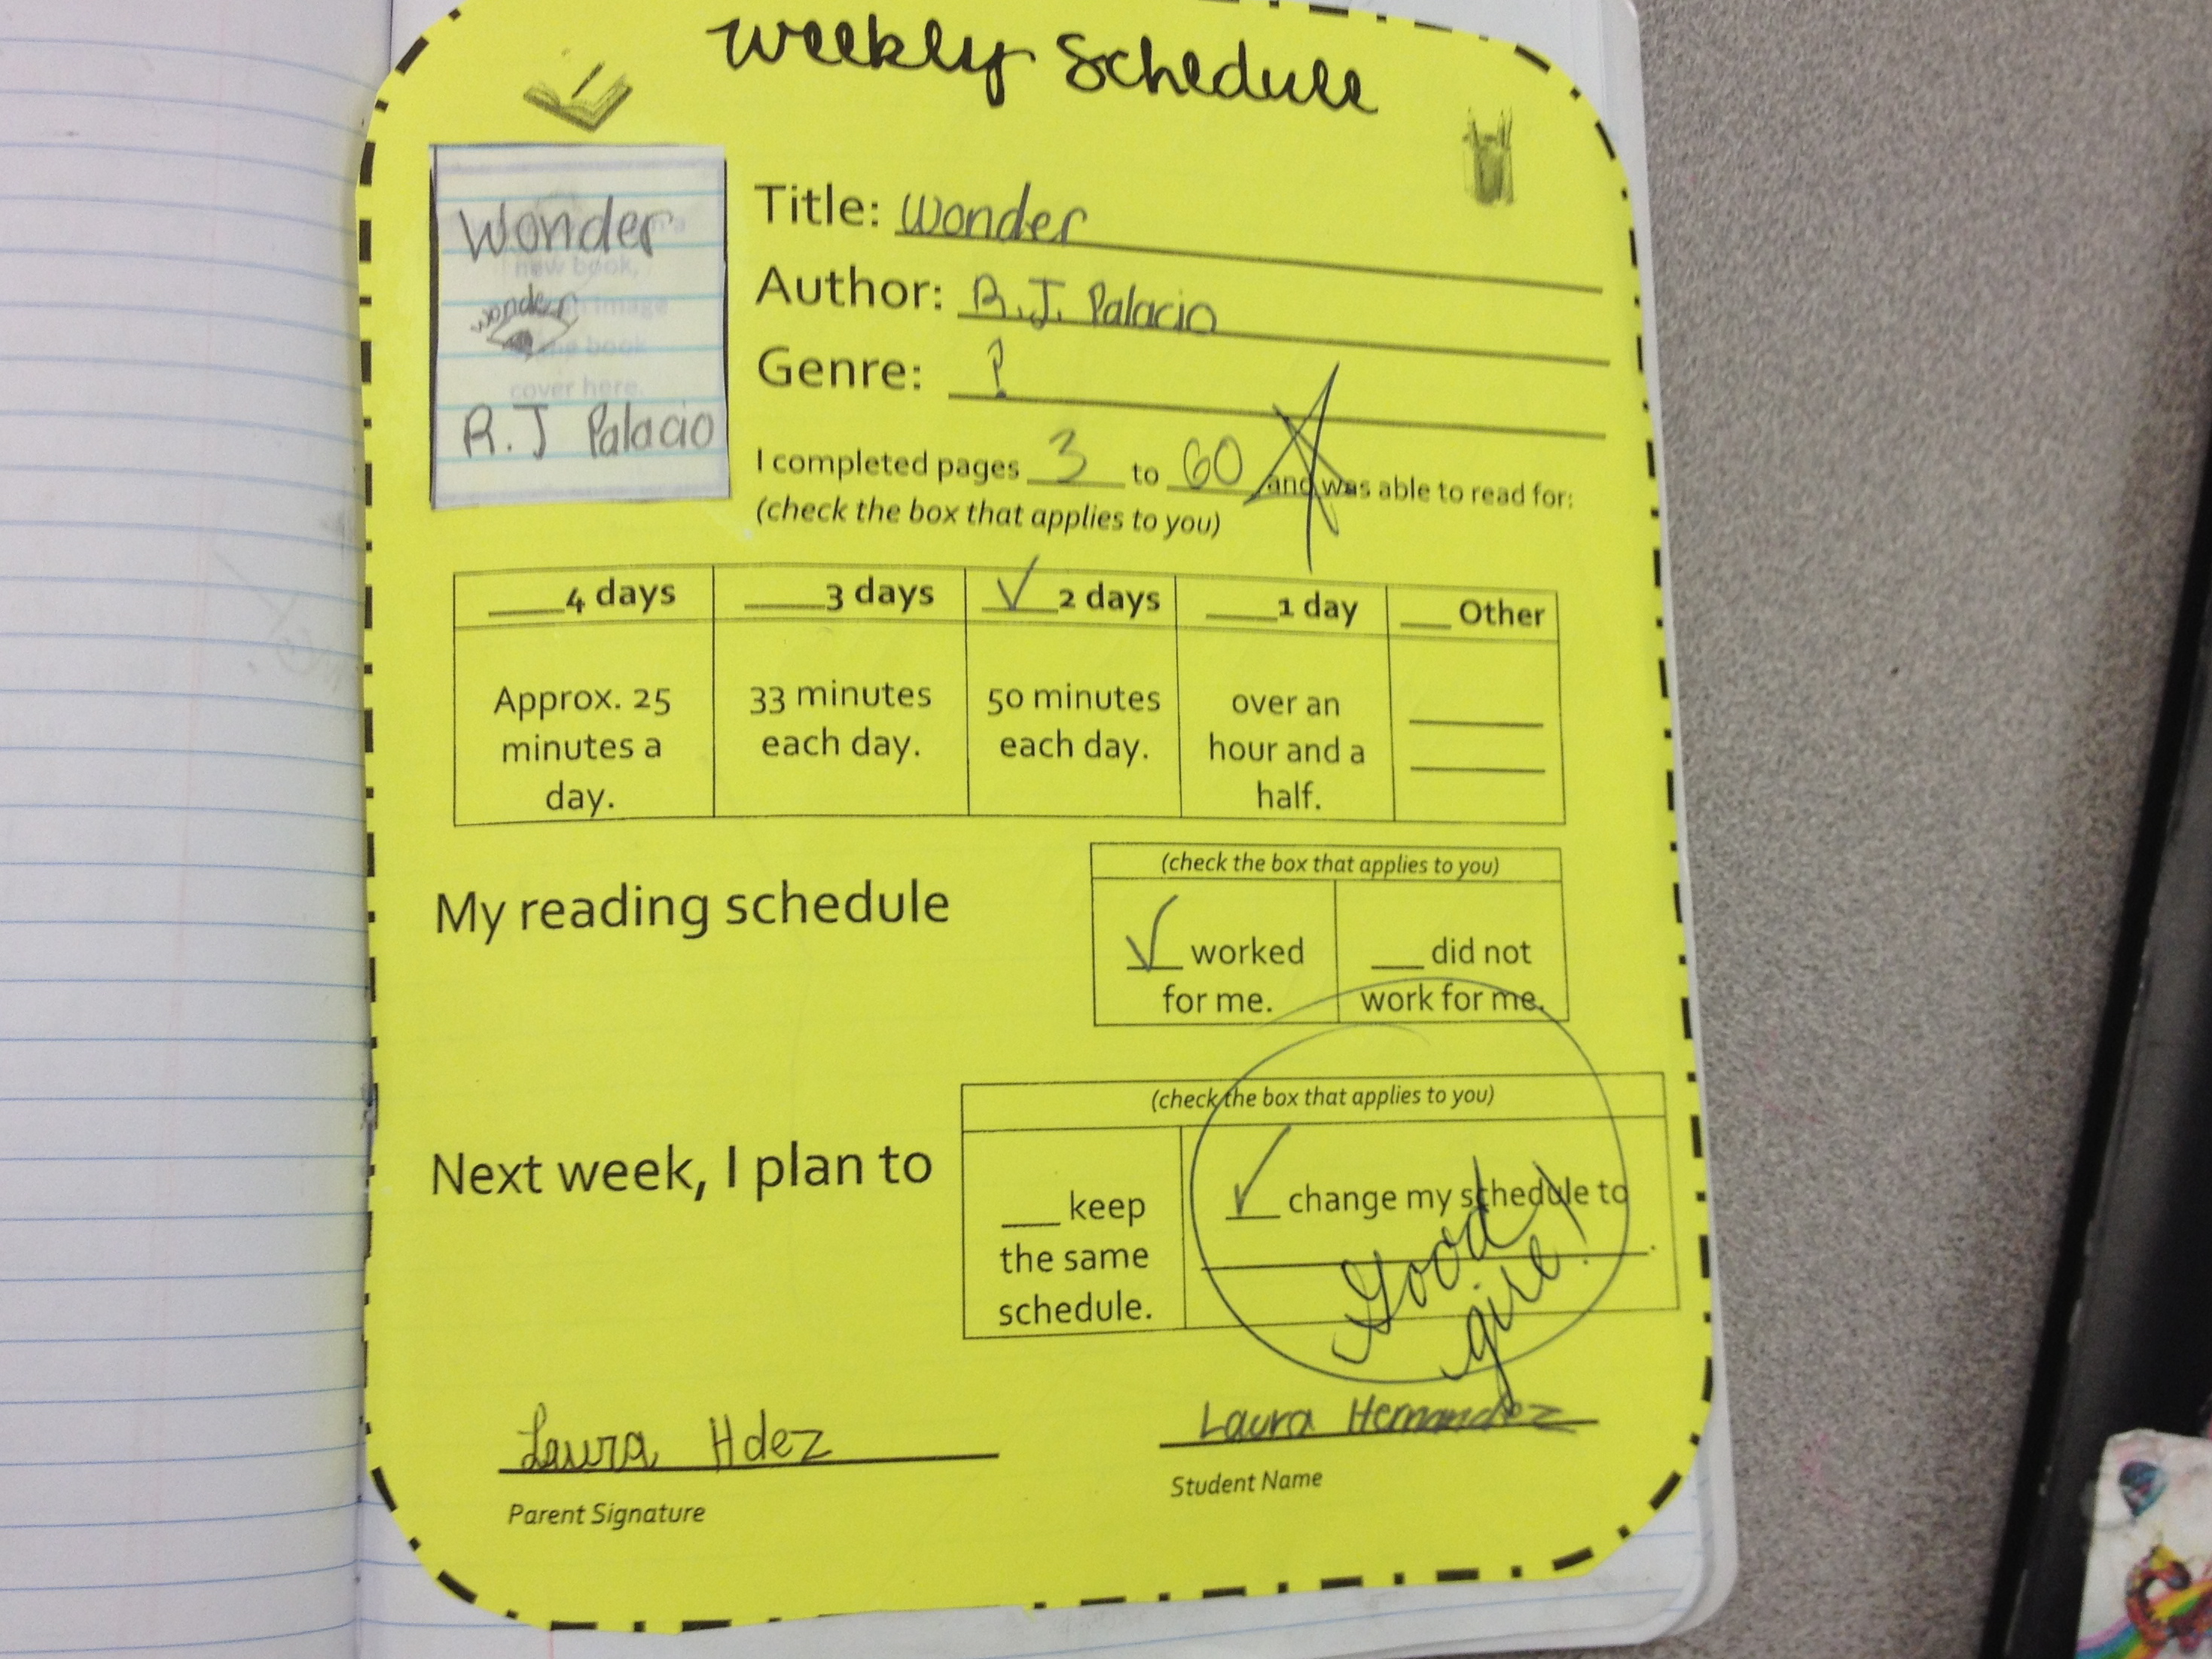 Weekly Schedule
Wonder
wonder
R.J Palacio
Title: Wonder
Author: R.J. Palacio
Genre: ?
I completed pages 3 to 60 and was able to read for:
(check the box that applies to you)
____4 days
Approx. 25
minutes a
day.
____3 days
33 minutes
each day.
✓ 2 days
50 minutes
each day.
____1 day
over an
hour and a
half.
___ Other
My reading schedule
(check the box that applies to you)
✓ worked
for me.
___ did not
work for me.
Next week, I plan to
(check the box that applies to you)
___ keep
the same
schedule.
✓ change my schedule to
.
Good
girl!
Laura Hdez
Parent Signature
Laura Hernandez
Student Name